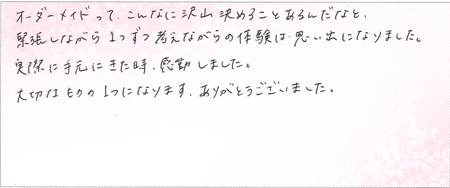 オーダーメイドって、こんなに沢山決めることあるんだなと、
緊張しながら1つずつ考えながらの体験は思い出になりました。
実際に手元にきた時、感動しました。
大切なものの1つになります、ありがとうございました。